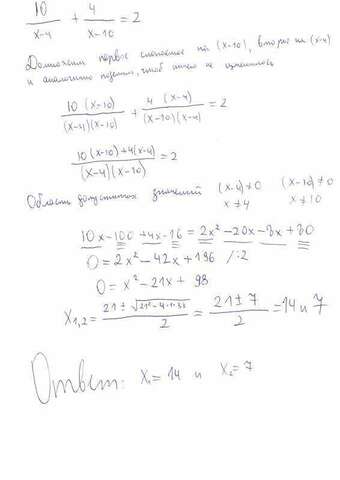 10/(x-4) + 4/(x-10) = 2
Домножим первое слагаемое на (x-10), второе на (x-4)
и аналогично поделим, чтоб ничего не изменилось
10(x-10)/((x-4)(x-10)) + 4(x-4)/((x-10)(x-4)) = 2
(10(x-10)+4(x-4))/((x-4)(x-10)) = 2
Область допустимых значений (x-4)≠0 (x-10)≠0
x≠4 x≠10
10x-100+4x-16 = 2x²-20x-8x+80
0=2x²-42x+196 /:2
0=x²-21x+98
x₁,₂ = (21±√(21²-4·1·98))/2 = (21±7)/2 = 14 и 7
Ответ: x₁=14 и x₂=7